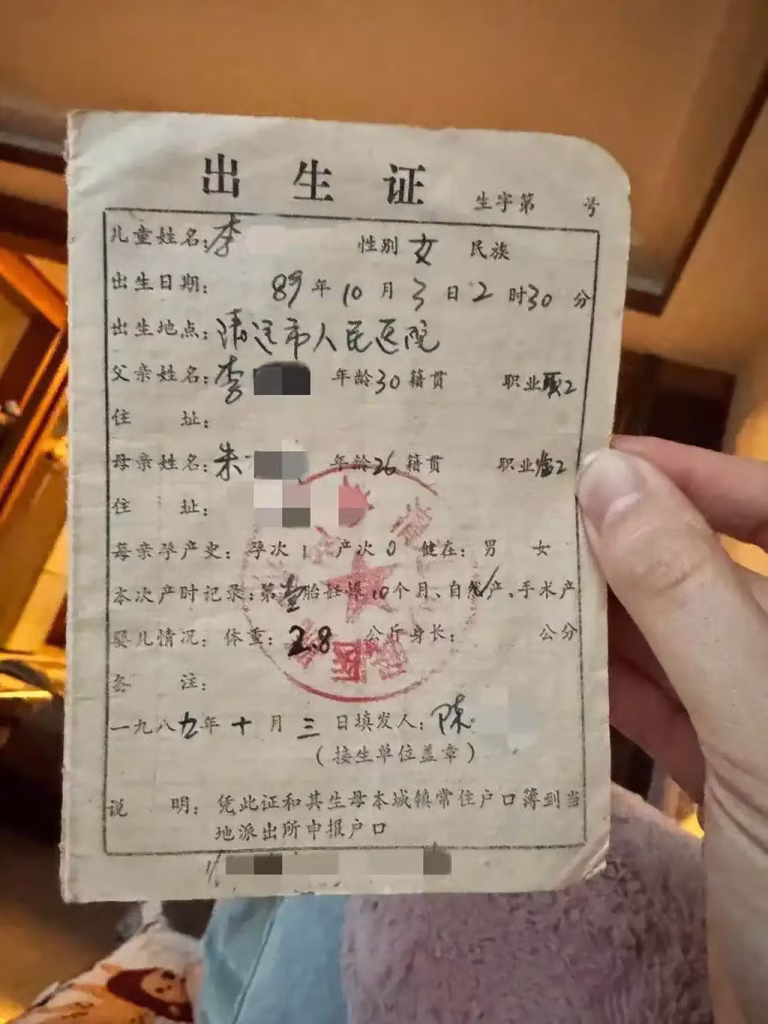 出生证
生字第 号
儿童姓名:李 性别 女 民族
出生日期: 89年10月3日2时30分
出生地点:清远市人民医院
父亲姓名:李 年龄30籍贯 职业
住 址:
母亲姓名:朱 年龄26籍贯 职业
住 址:
母亲孕产史:孕次1产次0 健在:男 女
本次产时记录:第 胎妊娠10个月、自然产、手术产
婴儿情况:体重:2.8公斤身长: 公分
备 注:
一九八九年十月三日填发人:陈
(接生单位盖章)
说 明:凭此证和其生母本城镇常住户口簿到当
地派出所申报户口